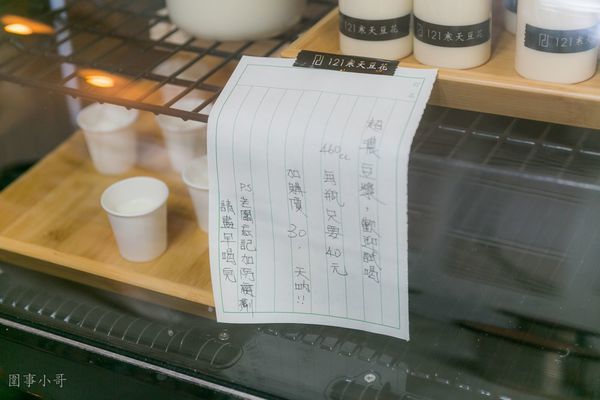 121寒天豆花
121寒天豆花
121寒天豆花
121寒天豆花
超濃豆漿，歡迎試喝
460cc 每瓶只要40元
加購價 30，天吶!!
PS老闆忘記加防腐劑
請盡早喝完
圍事小哥